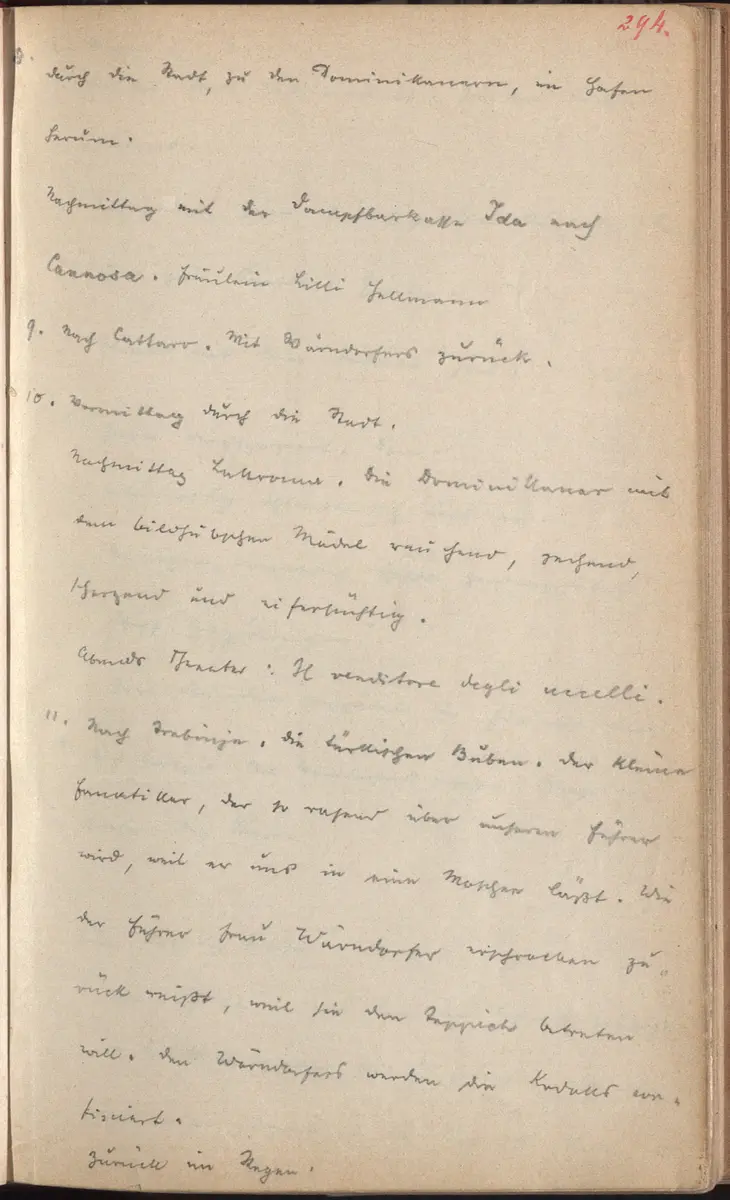 294.
8. durch die Stadt, zu den Dominikanern, im Hafen
herum.
Nachmittag mit der Dampfbarkasse Ida nach
Cannosa. Fräulein Lilli Hellmann
9. Nach Cattaro. Mit Wärndorfers zurück.
10. Vormittag durch die Stadt.
Nachmittag Lakroma. Die Dominikaner mit
dem bildhübschen Mädel rauchend, zechend,
scherzend und eifersüchtig.
Abends Theater: Il venditore degli uccelli.
11. Nach Trebinje. Die türkischen Buben. Der kleine
Fanatiker, der so rasend über unseren Führer
wird, weil er uns in eine Moschee läßt. Wie
der Führer Frau Wärndorfer erschrocken zu-
rück reißt, weil sie den Teppich betreten
will. Den Wärndorfers werden die Kodaks con-
fisciert.
Zurück im Regen.